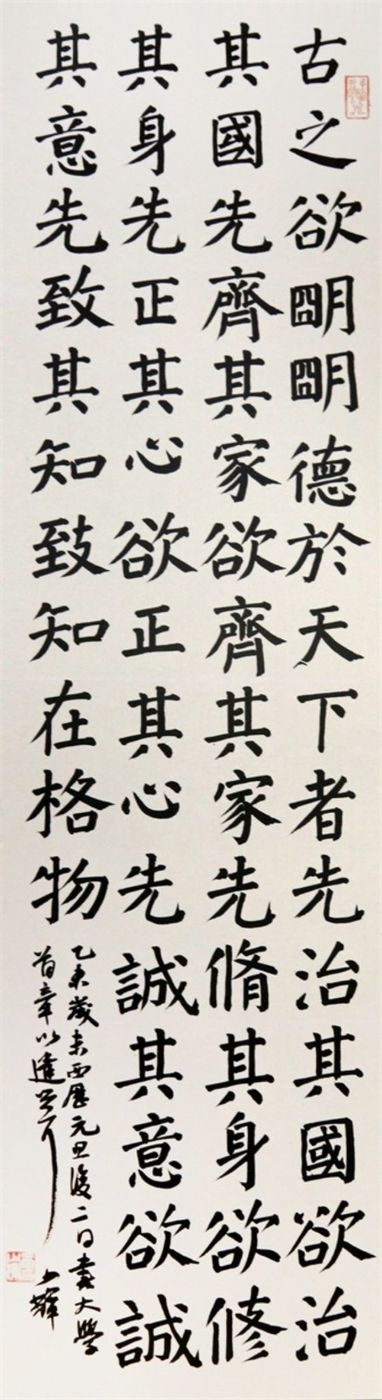 古之欲朙朙德於天下者先治其國欲治
其國先齊其家欲齊其家先脩其身欲修
其身先正其心欲正其心先誠其意欲誠
其意先致其知致知在格物
乙未歲末西歷元旦後二日書大學
首章以